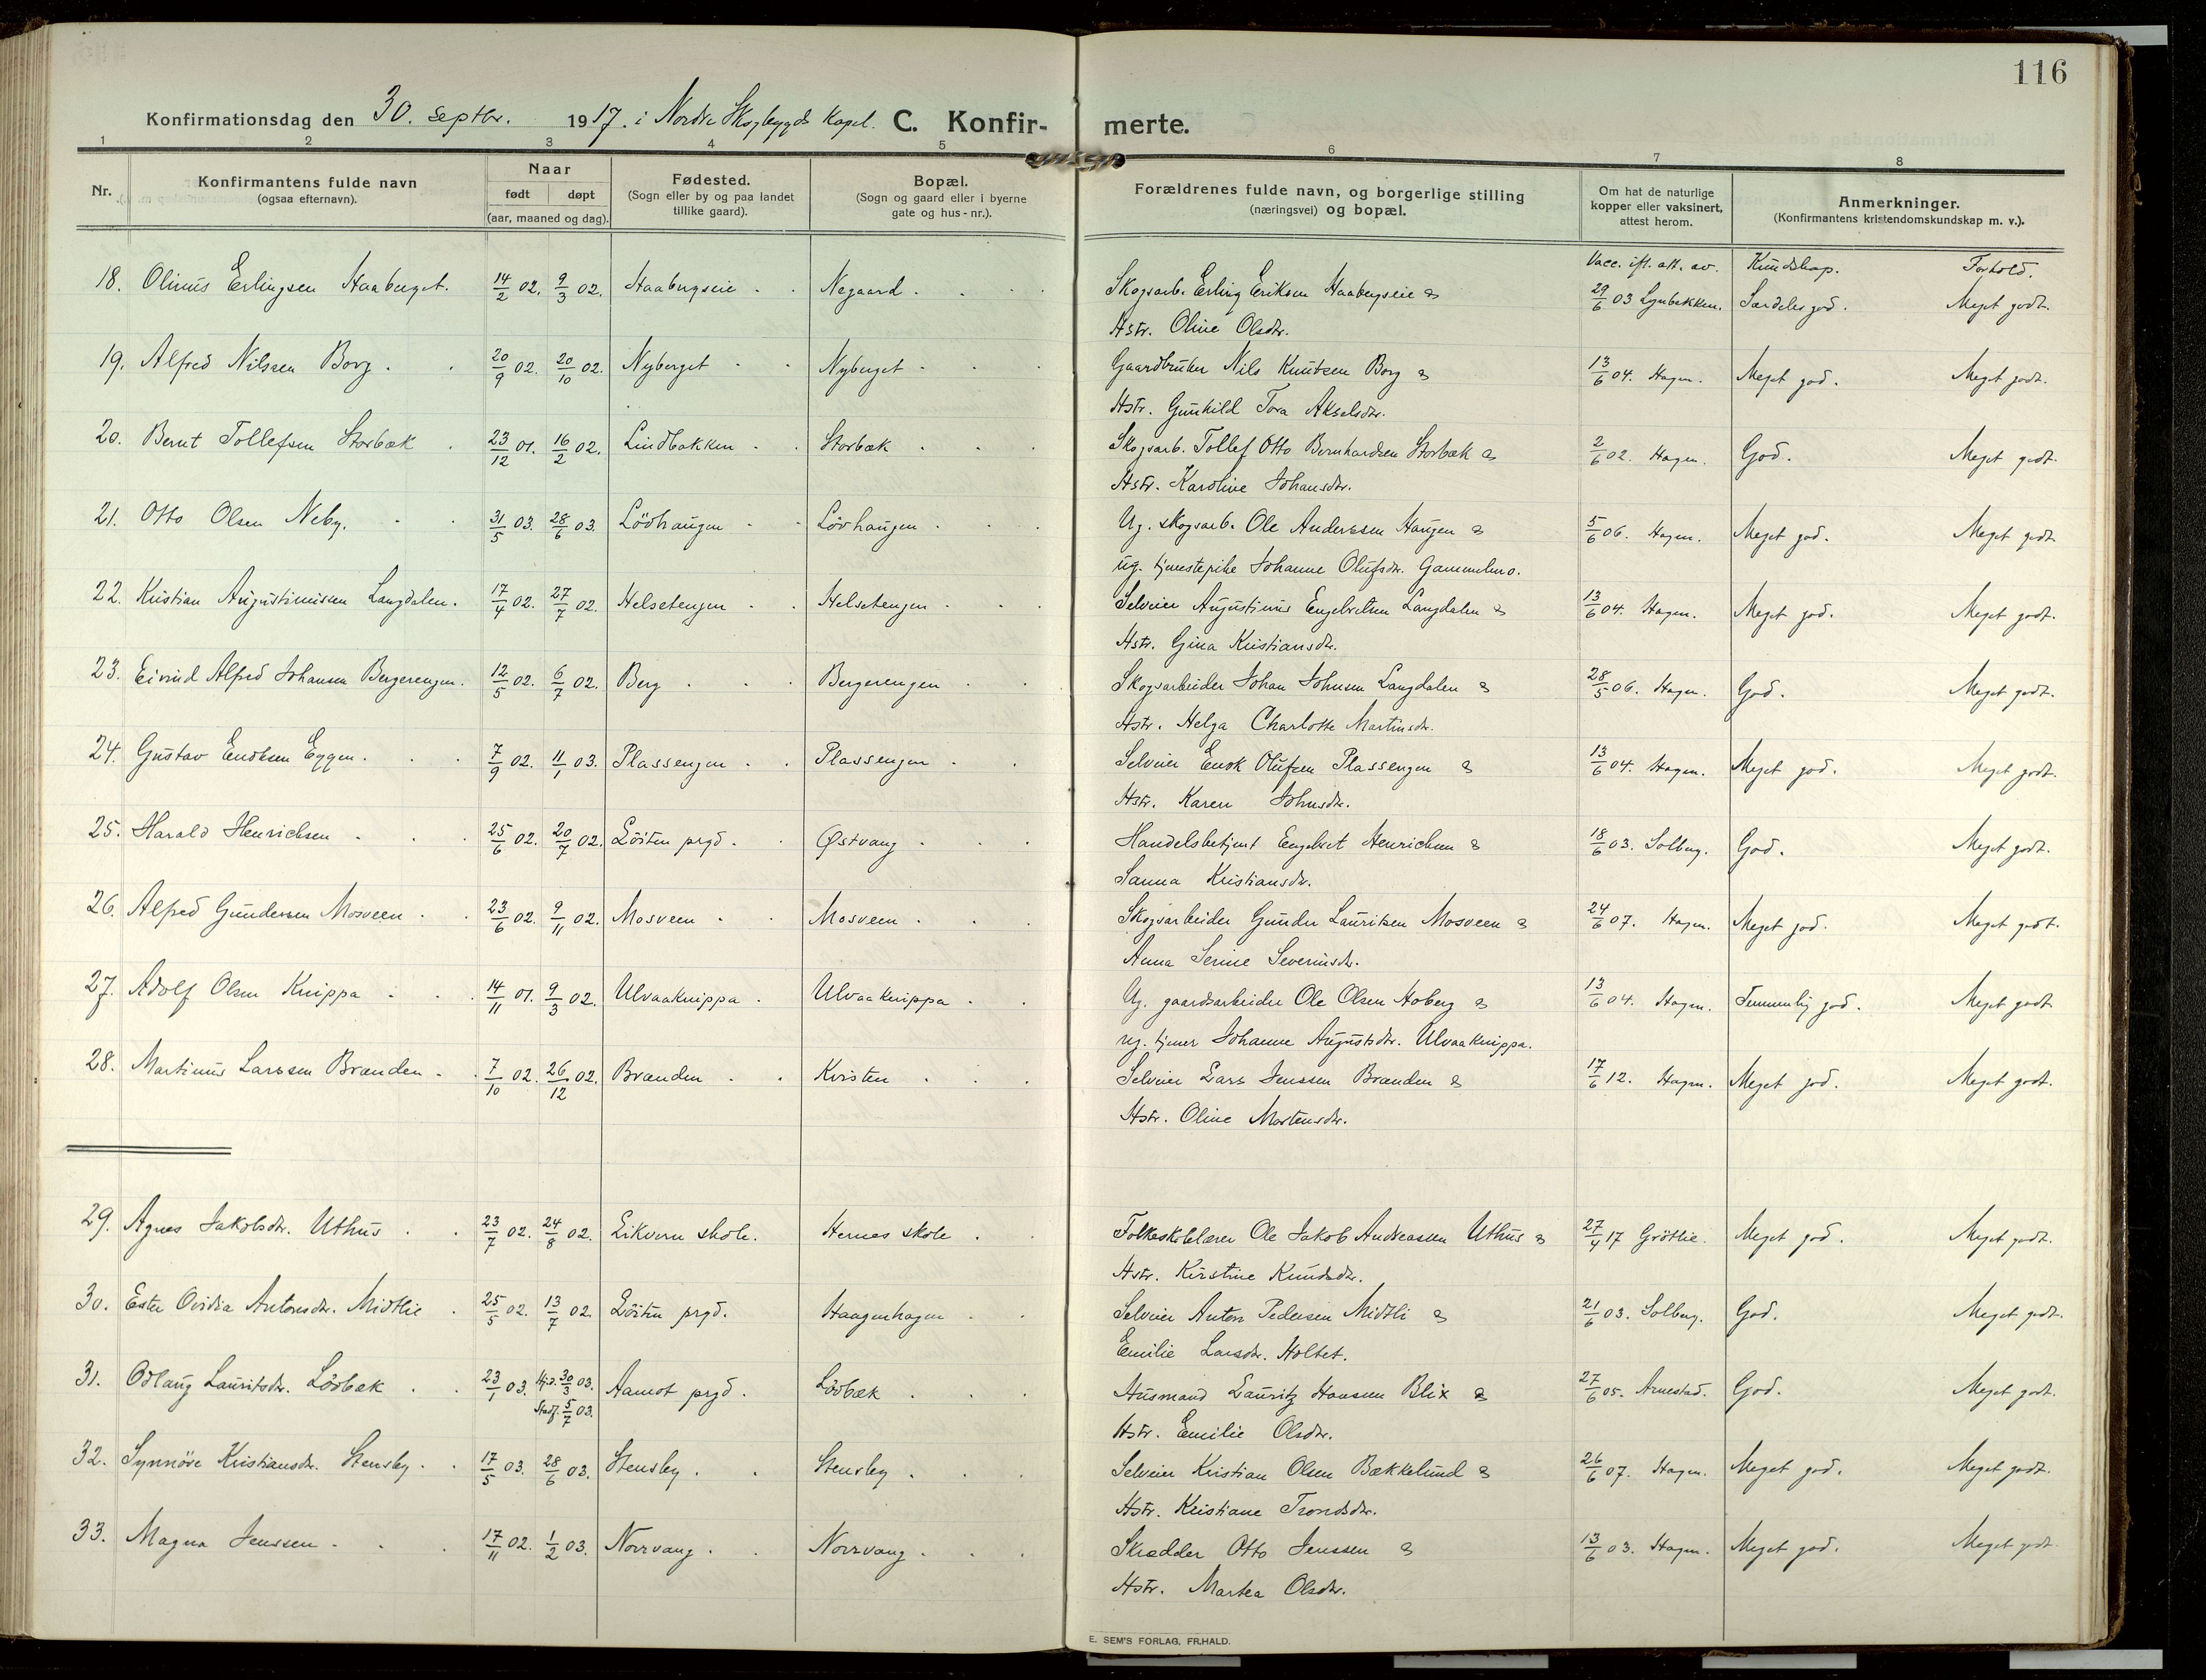 116
Konfirmationsdag den 30. septbr. 1917. i Nordre Skogbygds Kapel. C. Konfirmerte.
1 2 3 4 5 6 7 8
Nr.
Konfirmantens fulde navn
(ogsaa efternavn).
Naar
født døpt
(aar, maaned og dag).
Fødested.
(Sogn eller by og paa landet
tillike gaard).
Bopæl.
(Sogn og gaard eller i byerne
gate og hus-nr.).
Forældrenes fulde navn, og borgerlige stilling
(næringsvei) og bopæl.
Om hat de naturlige
kopper eller vaksinert,
attest herom.
Anmerkninger.
(Konfirmantens kristendomskundskap m. v.).
Vacc. ifl. att. av. Kundskap. Forhold.
18. Olinus Erlingsen Haaberget. 14/2 02. 9/3 02. Haabergseie Nægaard Skogsarb. Erling Eriksen Haabergseie & 29/6 03 Lynbekken. Særdeles god. Meget godt.
Hstr. Oline Olsdtr.
19. Alfred Nilssen Borg. 20/9 02. 20/10 02. Nyberget Nyberget Gaardbruker Nils Knutsen Borg & 13/6 04. Hagen. Meget god. Meget godt.
Hstr. Gunhild Tora Akselsdtr.
20. Bernt Tollefsen Storbæk 23/12 01. 16/2 02. Lindbakken Storbæk Skogsarb. Tollef Otto Bernhardsen Storbæk & 2/6 02. Hagen. God. Meget godt.
Hstr. Karoline Johansdtr.
21. Otto Olsen Neby. 31/5 03. 28/6 03. Lövhaugen Lövhaugen Ug. skogsarb. Ole Anderssen Haugen & 5/6 06. Hagen. Meget god. Meget godt
ug. tjenestepike Johanne Olufsdtr. Gammelmo.
22. Kristian Augustinussen Langdalen. 17/4 02. 27/7 02. Helsetengen Helsetengen Selveier Augustinus Engebretsen Langdalen & 13/6 04. Hagen. Meget god. Meget godt.
Hstr. Gina Kristiansdtr.
23. Eivind Alfred Johansen Bergerengen. 12/5 02. 6/7 02. Berg Bergerengen Skogsarbeider Johan Johnsen Langdalen & 28/5 06. Hagen. God. Meget godt.
Hstr. Helga Charlotte Martinsdtr.
24. Gustav Enoksen Eggen. 7/9 02. 11/1 03. Plassengen Plassengen Selveier Enok Olufsen Plassengen & 13/6 04. Hagen. Meget god. Meget godt.
Hstr. Karen Johnsdtr.
25. Harald Henrichsen 25/6 02. 20/7 02. Löiten prgd. Østvang Handelsbetjent Engebret Henrichsen & 18/6 03. Solberg. God. Meget godt.
Sanna Kristiansdtr.
26. Alfred Gundersen Mosveen 23/6 02. 9/11 02. Mosveen Mosveen Skogsarbeider Gunder Lauritsen Mosveen & 24/6 07. Hagen. Meget god. Meget godt.
Anna Serine Severinsdtr.
27. Adolf Olsen Knippa 14/11 01. 9/3 02. Ulvaaknippa Ulvaaknippa Ug. gaardsarbeider Ole Olsen Hoberg & 13/6 04. Hagen. Temmelig god. Meget godt
ug. tjener Johanne Augustsdtr. Ulvaaknippa.
28. Martinus Larssen Brænden 7/10 02. 26/12 02. Brænden Kvisten Selveier Lars Jenssen Brænden & 17/6 12. Hagen. Meget god. Meget godt.
Hstr. Oline Mortensdtr.
29. Agnes Jakobsdtr. Uthus 23/7 02. 24/8 02. Eikvern skole. Hernes skole Folkeskolelærer Ole Jakob Andreassen Uthus & 27/4 17 Gröttlie. Meget god. Meget godt.
Hstr. Kirstine Knudsdtr.
30. Ester Ovidia Antonsdtr. Midtlie 25/5 02. 13/7 02. Löiten prgd. Haagenhagen Selveier Anton Pedersen Midtli & 21/6 03. Solberg. God. Meget godt.
Emilie Larsdtr. Holtet.
31. Odlaug Lauritsdtr. Lövbæk 23/1 03. Hj.d. 30/3 03. Aamot prgd. Lövbæk Husmand Lauritz Hansen Blix & 27/6 05. Arnestad. God. Meget godt.
Stadf. 5/7 03. Hstr. Emilie Olsdtr.
32. Synnöve Kristiansdtr. Stensby. 17/5 03. 28/6 03. Stensby. Stensby Selveier Kristian Olsen Bækkelund & 26/6 07. Hagen. Meget god. Meget godt.
Hstr. Kristiane Trondsdtr.
33. Magna Jenssen 17/11 02. 1/2 03. Norrvang. Norrvang Skrædder Otto Jenssen & 13/6 03. Hagen. Meget god. Meget godt.
Hstr. Martea Olsdtr.
E. SEM'S FORLAG, FR.HALD.